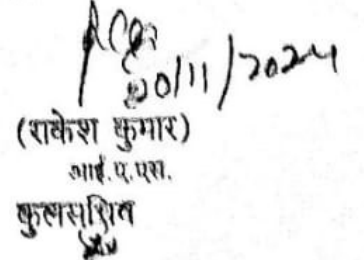 20/11/2024
(राकेश कुमार)
आई.ए.एस.
कुलसचिव